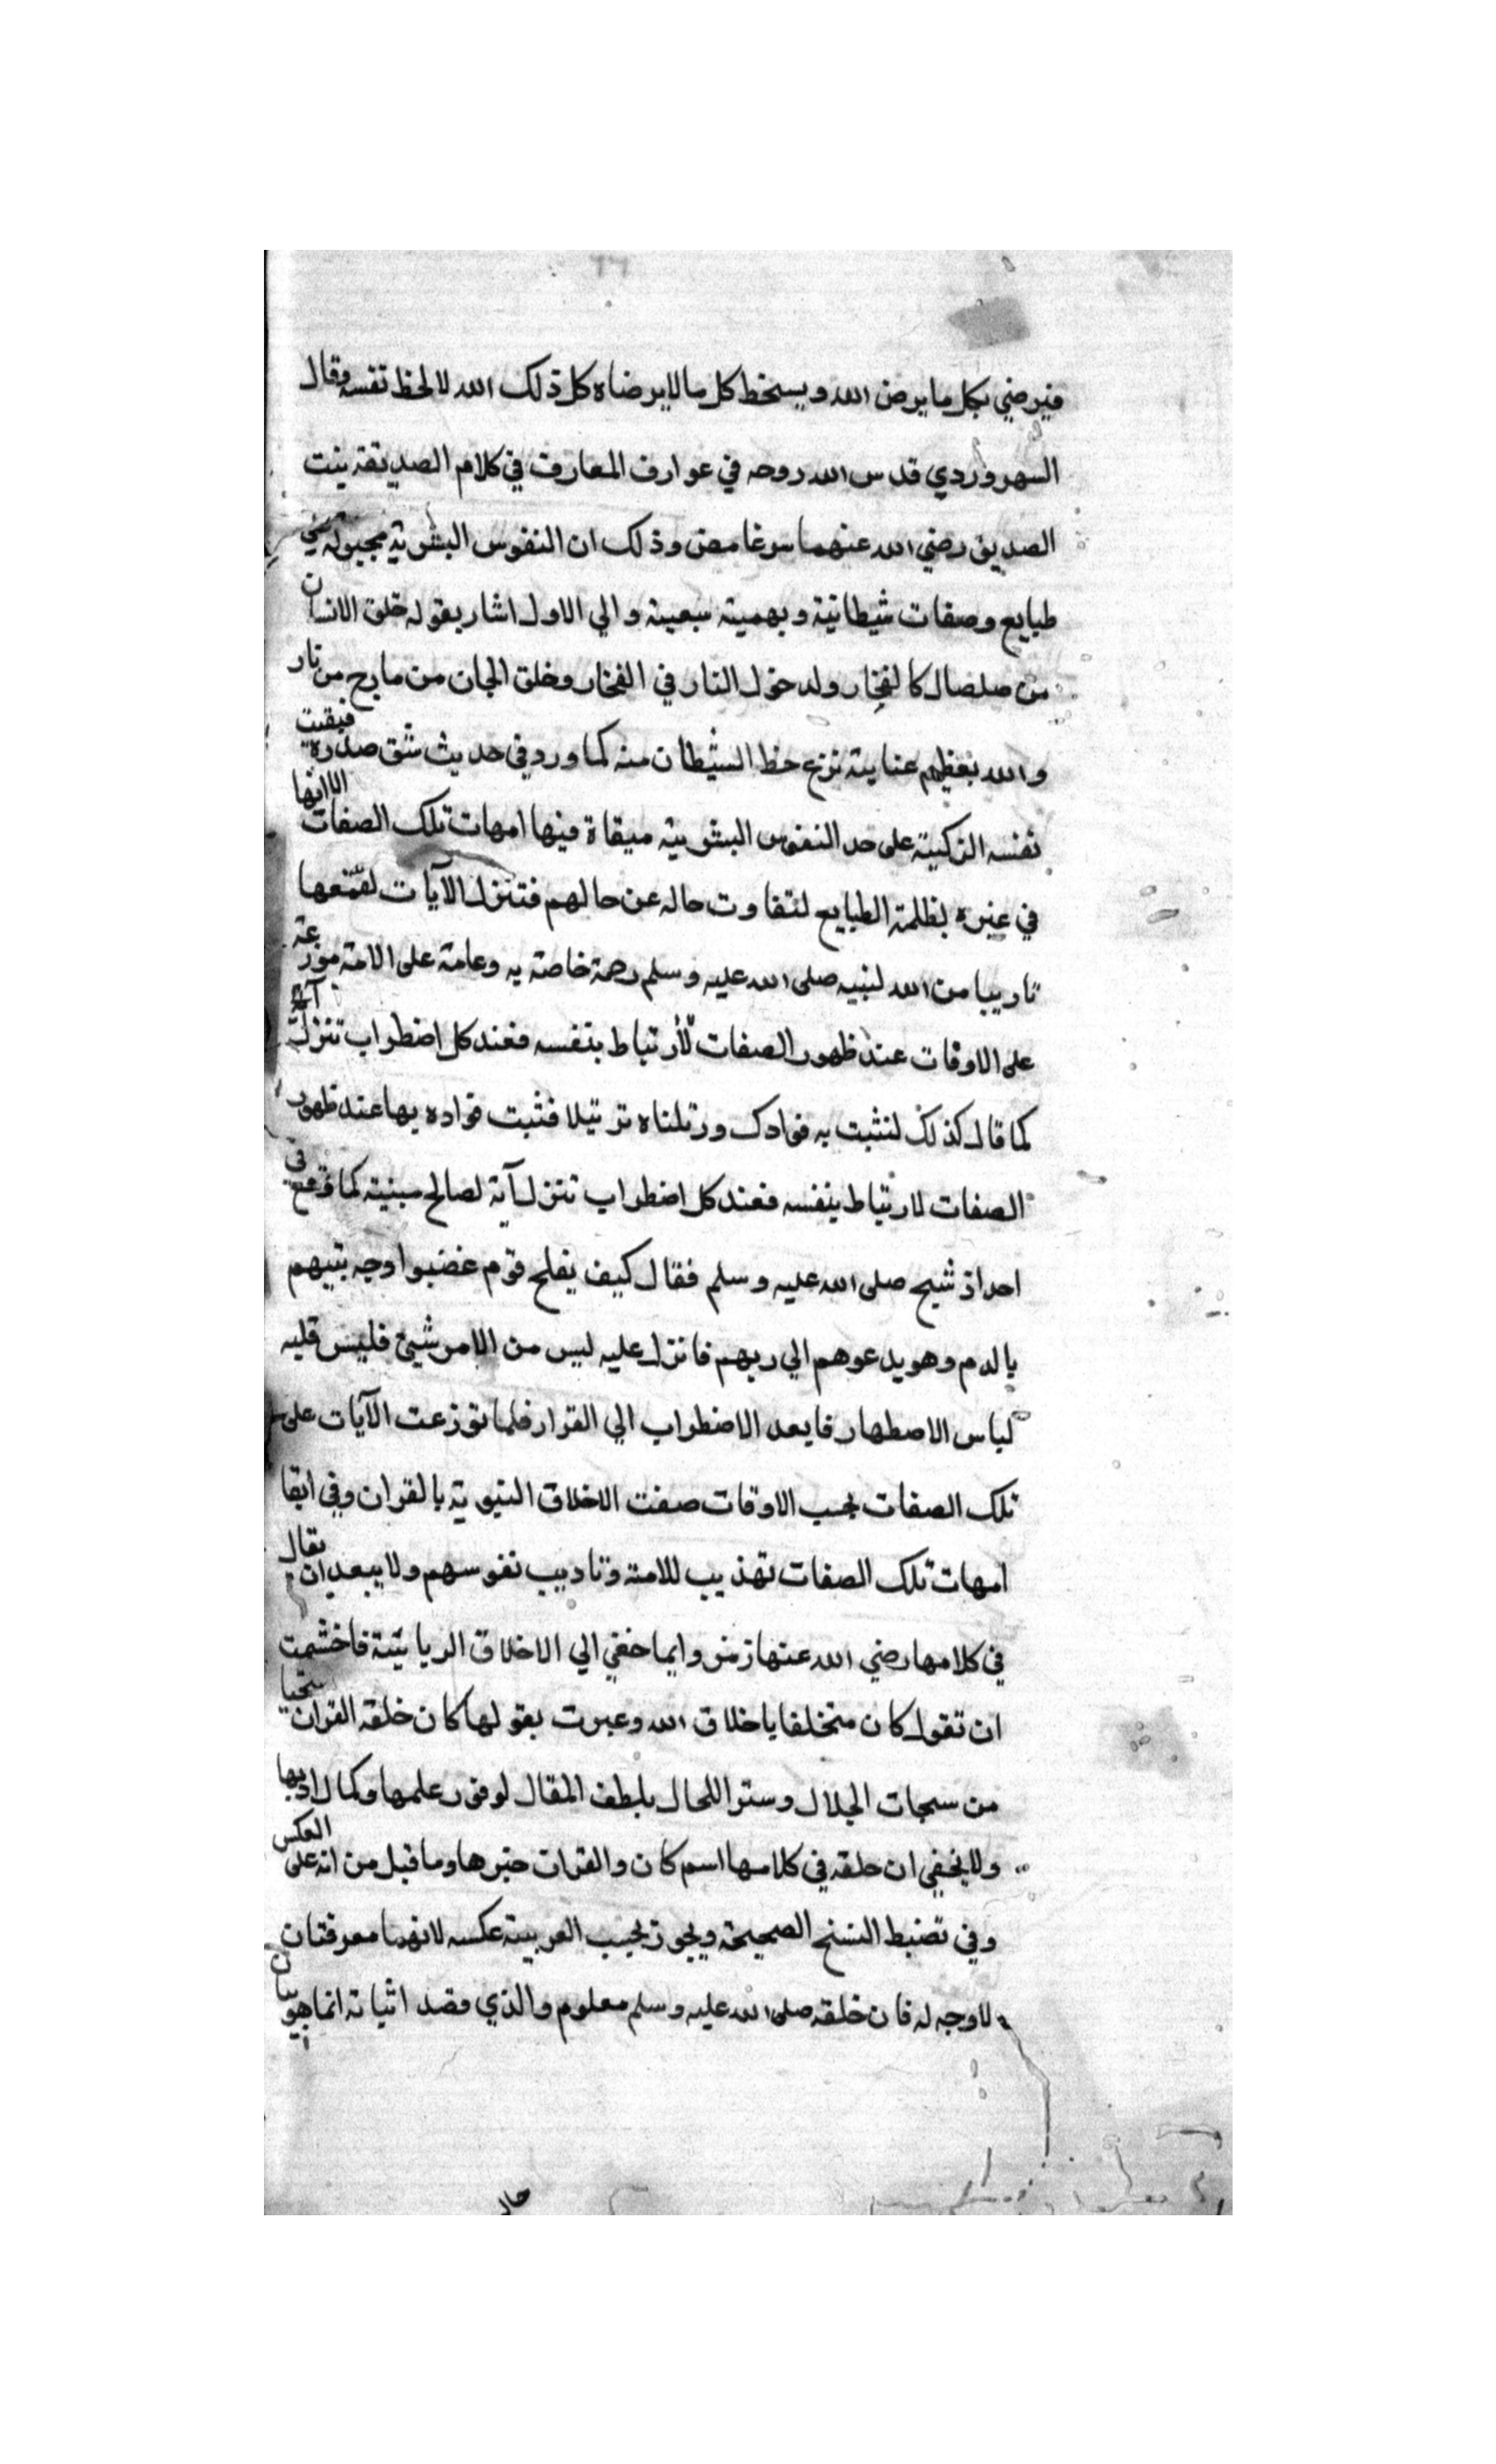 فيرضي بكل ما يرضى الله ويسخط كل ما لا يرضاه كل ذلك الله لا لحظ نفسه وقال
السهروردي قدس الله روحه في عوارف المعارف في كلام الصديقة بنت
الصديق رضي الله عنهما سر غامض وذلك ان النفوس البشرية مجبولة على
طبايع وصفات شيطانية وبهمية سبعية والي الاول اشار بقوله خلق الانسان
من صلصال كالفخار ولدخول النار في الفخار وخلق الجان من مارج من نار
والله بعظيم عنايته نزع حظ الشيطان منه كما ورد في حديث شق صدره فبقيت
نفسه الزكية على حد النفوس البشرية مبقاة فيها امهات تلك الصفات الا انها
في غيره بظلمة الطبايع لتفاوت حاله عن حالهم فتنزل الآيات لقمعها
تاديبا من الله لنبيه صلى الله عليه وسلم رحمة خاصة به وعامة على الامة موزعة
على الاوقات عند ظهور الصفات لارتباط بنفسه فعند كل اضطراب تنزل آية
كما قال كذلك لنثبت به فوادك ورتلناه ترتيلا فثبت فواده بها عند ظهور
الصفات لارتباط بنفسه فعند كل اضطراب تنزل آية لصالح مبنية كما وقع في
احد اذ شيج صلى الله عليه وسلم فقال كيف يفلح قوم غضبوا وجه نبيهم
بالدم وهو يدعوهم الي ربهم فانزل عليه ليس من الامر شيئ فلبس قلبه
لباس الاصطهار فا بعد الاضطراب الي القرار فلما توزعت الآيات على
تلك الصفات بحسب الاوقات صفت الاخلاق النبوية بالقران وفي ابقا
امهات تلك الصفات تهذيب للامة وتاديب نفوسهم ولا يبعد ان يقال
في كلامها رضي الله عنها رمز وايما خفي الي الاخلاق الربانية فاحتشمت
ان تقول كان متخلقا باخلاق الله وعبرت بقولها كان خلقه القران
من سبحات الجلال وستر اللحال بلطف المقال لوفور علمها وكمال ادبها
ولا يخفي ان خلقه في كلامها اسم كان والقران خبرها وما قيل من انه على العكس
وفي تضبط النسخ الصحيحة ويجوز بحسب العربية عكسه لانهما معرفتان
لا وجه له فان خلقه صلى الله عليه وسلم معلوم والذي قصد اثباته انما هو